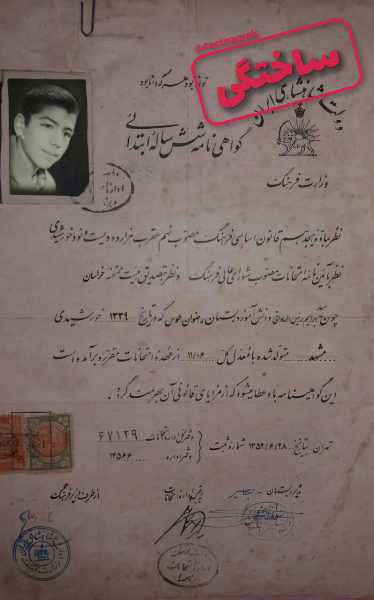 @Factnameh
ساختگی
توانا بود هر که دانا بود
دولت شاهنشاهی ایران
گواهی نامه شش ساله ابتدائی
وزارت فرهنگ
نظر بماده هیجدهم قانون اساسی فرهنگ مصوب نهم عقرب هزار و دویست و نود خورشیدی
نظر بآئین نامه امتحانات مصوب شورای عالی فرهنگ و نظر بتصدیق هیئت ممتحنه خراسان
چون سید ابراهیم رئیس الساداتی دانش آموز دبستان رضوان طوس که در تاریخ ۱۳۳۹ خورشیدی
مشهد متولد شده با معدل کل ۱۱/۰۶ از عهده امتحانات مقرره برآمده است
این گواهینامه باو عطا میشود که از مزایای قانونی آن بهره مند گردد.
تهران، بتاریخ ۱۳۵۲/۶/۲۸ شماره ثبت
دفتر کل اداره امتحانات ۶۷۱۲۹
دفتر اداره ۱۴۵۶۶
مدیر دبستان - بصیر
رئیس اداره امتحانات
از طرف وزیر فرهنگ